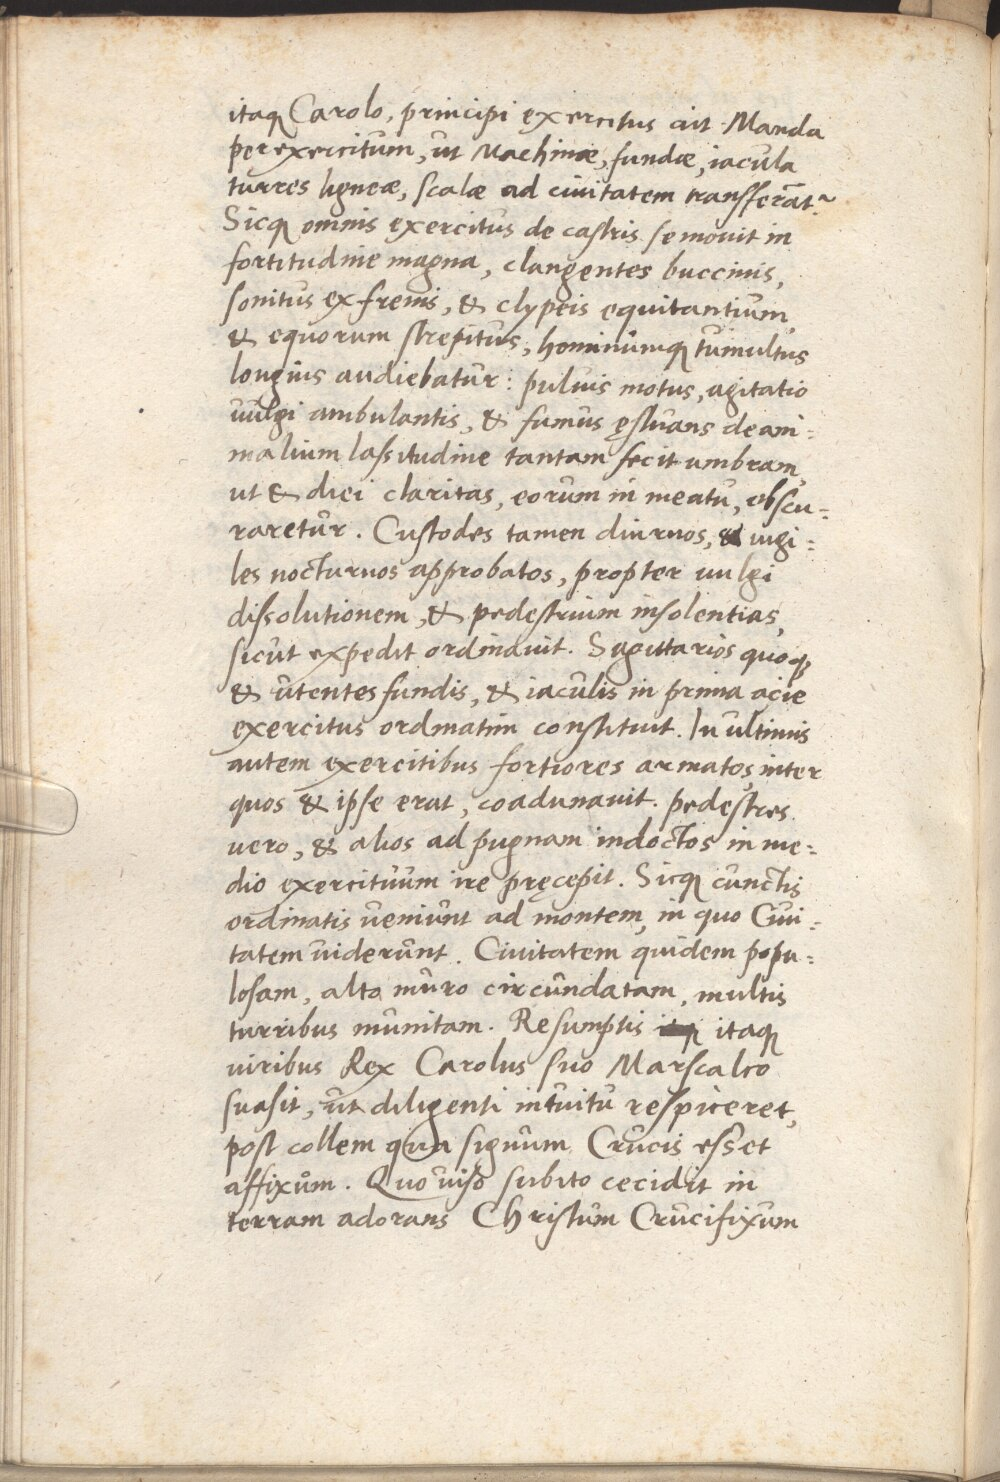 itaq Carolo, principi exercitus ait. Manda
per exercitum, ut Machinæ, fundæ, iacula
turres ligneæ, scalæ ad ciuitatem transferāt~
Sicq omnis exercitus de castris se mouit in
fortitudine magna, clangentes buccinis,
sonitus ex frenis, & clypeis equitantium,
& equorum strepitus, hominumq tumultus
longius audiebatur: puluis motus, agitatio
uulgi ambulantis, & fumus ęstuans de ani=
malium lassitudine tantam fecit umbram,
ut & diei claritas, eorum in meatu, obscu=
raretur. Custodes tamen diurnos, & uigi=
les nocturnos approbatos, propter uulgi
dissolutionem, & pedestrium insolentias,
sicut expedit ordinauit. Sagittarios quoq
& utentes fundis, & iaculis in prima acie
exercitus ordinatim constituit. In ultimis
autem exercitibus fortiores armatos, inter
quos & ipse erat, coadunauit. pedestres
uero, & alios ad pugnam indoctos in me=
dio exercituum ire pręcepit. Sicq cunctis
ordinatis ueniunt ad montem, in quo Ciui=
tatem uiderunt. Ciuitatem quidem popu=
losam, alto muro circundatam, multis
turribus munitam. Resumptis itaq
uiribus Rex Carolus suo Marscalco
suasit, ut diligenti intuitu respiceret,
post collem qua signum Crucis esset
affixum. Quo uiso subito cecidit in
terram adorans Christum Crucifixum